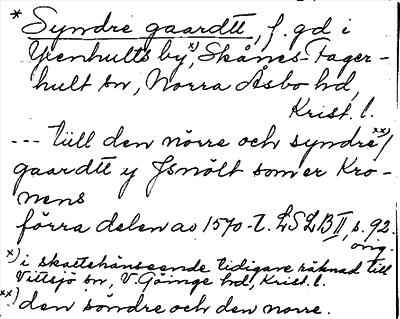 * Syndre gaardtt, f. gd i
Yxenhults by,x) Skånes-Fager-
hult sn, Norra Åsbo hd,
Krist. l.
--- till den nörre och syndre xx)/
gaardtt y Jsnölt som er Kro-
nens
förra delen av 1570-t. LSLB II, s. 92.
orig.
x) i skattehänseende tidigare räknad till
Vittsjö sn, V. Göinge hd, Krist. l.
xx) den söndre och den norre.